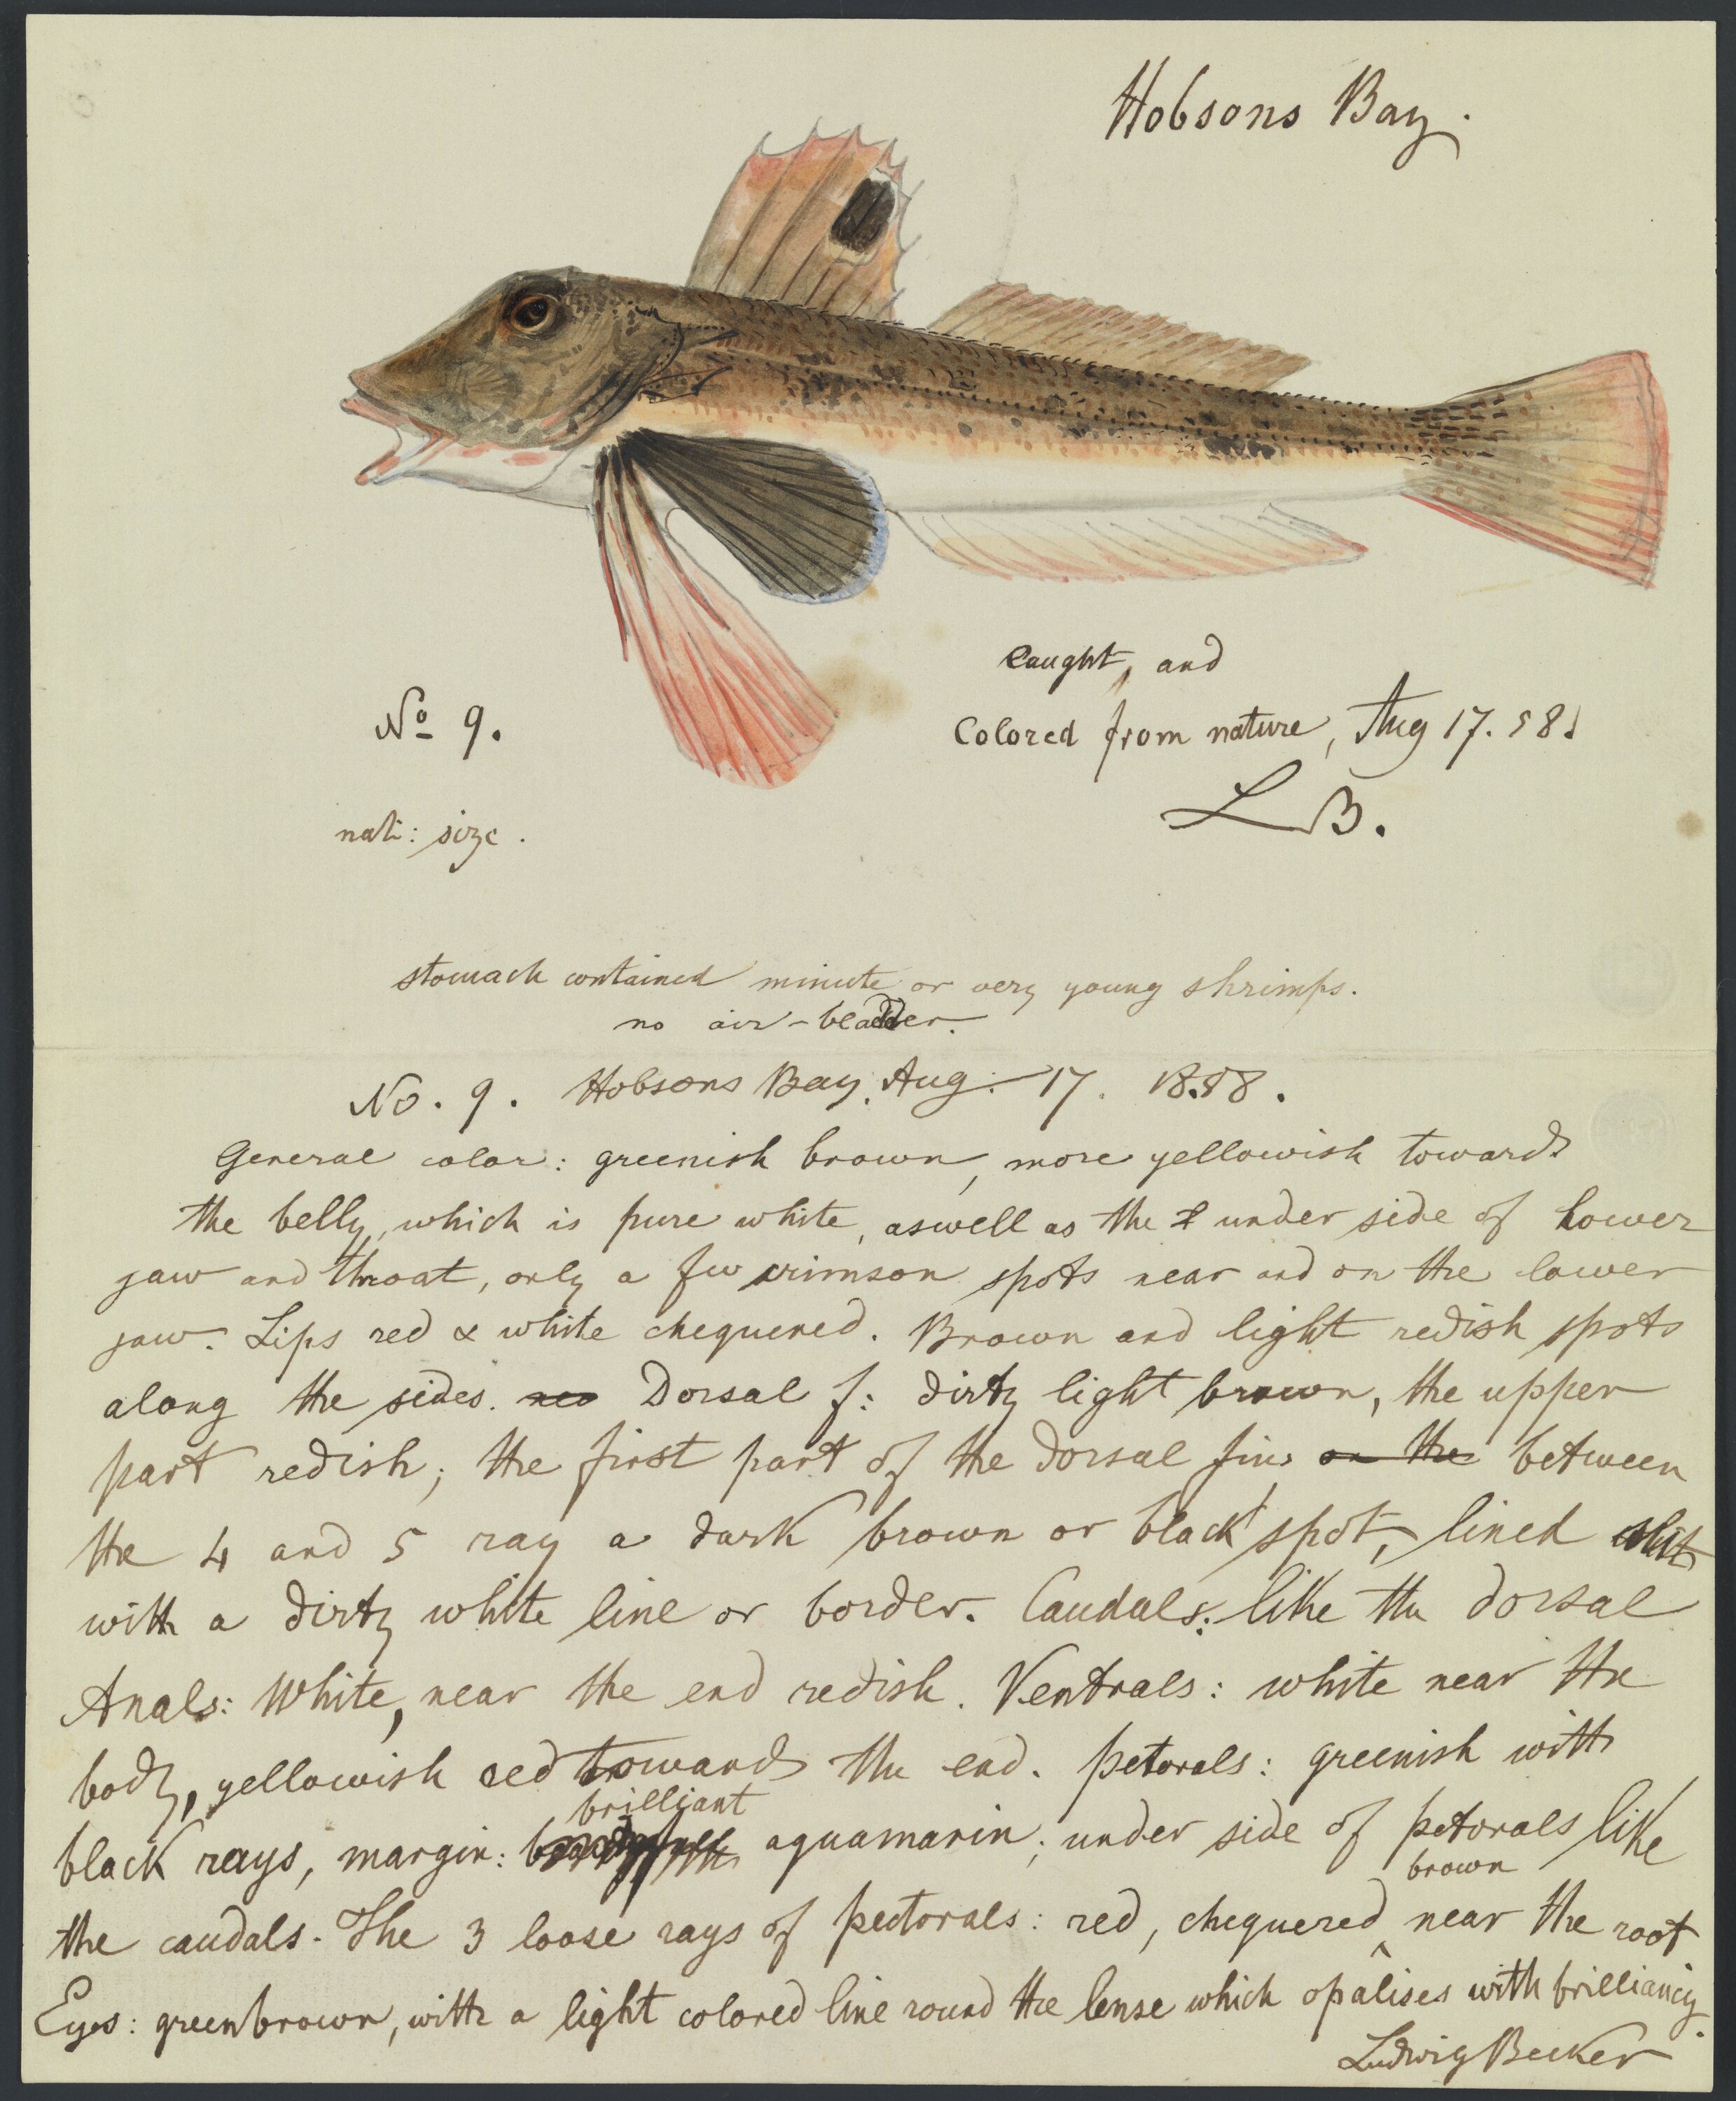 Hobsons Bay.
caught, and
No 9.
Colored from nature, Aug 17. 58.
L B.
nat: size.
stomach contained minute or very young shrimps.
no air-bladder.
No. 9. Hobsons Bay. Aug: 17. 1858.
General color: greenish brown, more yellowish towards
the belly, which is pure white, aswell as the under side of lower
jaw and throat, only a few crimson spots near and on the lower
jaw. Lips red & white chequered. Brown and light redish spots
along the sides. Dorsal f: dirty light brown, the upper
part redish; the first part of the dorsal fin on the between
the 4 and 5 ray a dark brown or black spot, lined
with a dirty white line or border. Caudals: like the dorsal
Anals: White, near the end redish. Ventrals: white near the
body, yellowish red towards the end. petorals: greenish with
brilliant
black rays, margin: aquamarin; under side of petorals like
brown
the caudals. The 3 loose rays of pectorals: red, chequered near the root
Eyes: greenbrown, with a light colored line round the lense which opalises with brilliancy.
Ludwig Becker